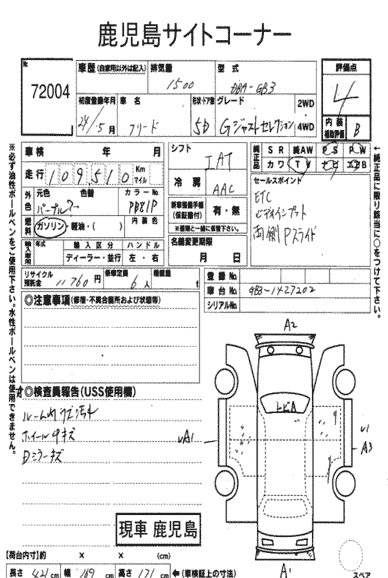 鹿児島サイトコーナー
72004
車歴(自家用以外は記入)
排気量
型式
1500
DBA-GB3
評価点
4
初度登録年月
24/5月
車名
フリード
形状・ドア数
5D
グレード
Gジャストセレクション
2WD
4WD
内装
補助評価
B
車検 年 月
走行
109510
Km
マイル
元色
色替
カラーNo
パープル
PB81P
燃料
ガソリン・軽油・( )
内装色
輸入車
年式
輸入区分
ディーラー・並行
ハンドル
左・右
リサイクル
預託金
11760円
乗車定員
6人
積載量
t
シフト
IAT
冷房
AAC
新車整備手帳
(保証書付)
有・無
名義変更期限
月 日
純正品
SR
純AW
PS
PW
カワ
TV
ナビ
エアB
セールスポイント
ETC
ビデオインプット
両側Pスライド
登録No.
車台No.
GB3-1427202
シリアルNo.
※必ず油性ボールペンをご使用下さい。水性ボールペンは使用できません。
←純正品に限り該当に○をつけて下さい。
◎注意事項(修復・不具合箇所および状態等)
◎検査員報告(USS使用欄)
ルーム内キズ汚れ
ホイール4キズ
Dミラーキズ
現車 鹿児島
A2
トビA
A1
U1
A3
A1
【荷台内寸】約 × × (cm)
長さ 421cm 幅 169cm 高さ 171cm ←(車検証上の寸法)
スペア